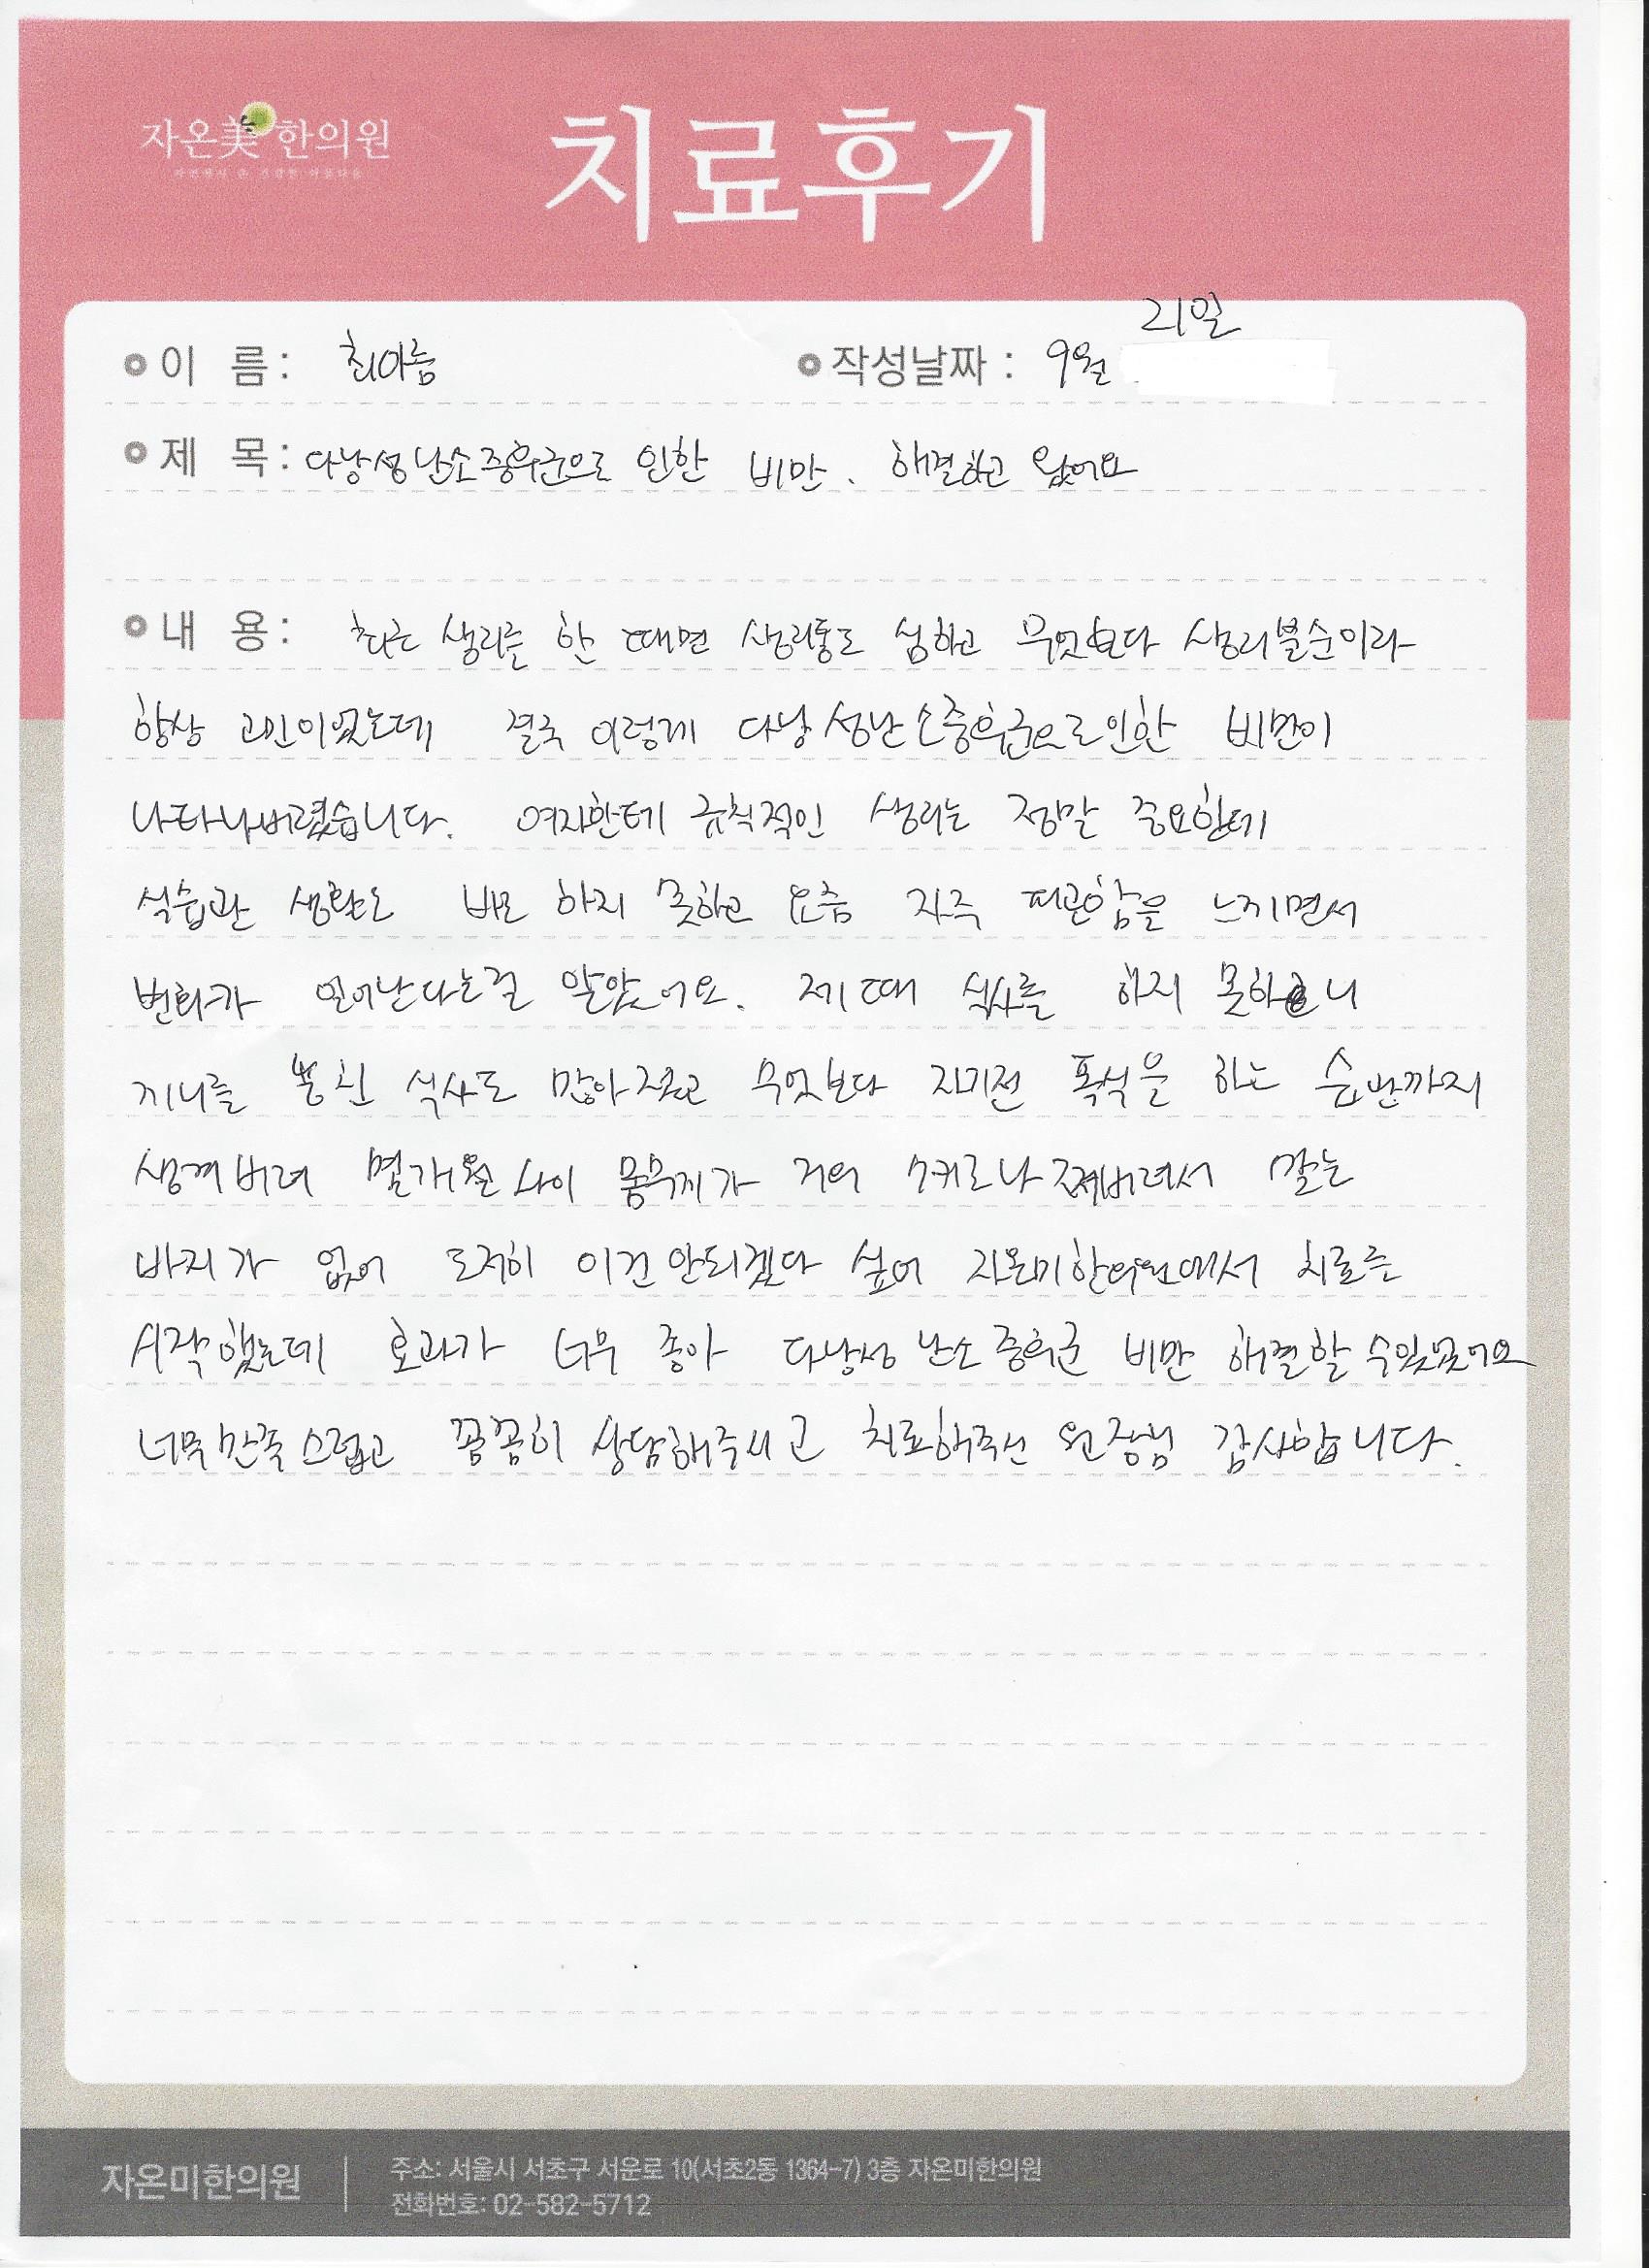 자온美한의원
치료후기
이 름: 최아름 작성날짜: 9월 21일
제 목: 다낭성난소증후군으로 인한 비만. 해결하고 있어요
내 용: 저는 생리를 한 때면 생리통도 심하고 무엇보다 생리불순이라
항상 고민이었는데 결국 이렇게 다낭성난소증후군으로인한 비만이
나타나버렸습니다. 여자한테 규칙적인 생리는 정말 중요한데
식습관 생활도 바로 하지 못하고 요즘 자주 피곤함을 느끼면서
변화가 일어난다는걸 알았어요. 제때 식사를 하지 못하니
끼니를 식사도 많아졌고 무엇보다 자기전 폭식을 하는 습관까지
생겨버려 몇개월사이 몸무게가 거의 7키로나 쪄버려서 맞는
바지가 없어 도저히 이건안되겠다 싶어 자온미한의원에서 치료를
시작했는데 효과가 너무 좋아 다낭성난소증후군 비만 해결할 수있었어요
너무만족스럽고 꼼꼼히 상담해주시고 치료해주신 원장님 감사합니다.
자온미한의원
주소: 서울시 서초구 서운로 10(서초2동 1364-7) 3층 자온미한의원
전화번호: 02-582-5712